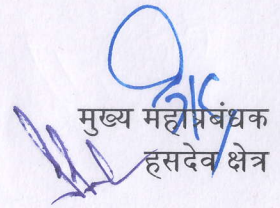 मुख्य महाप्रबंधक
हसदेव क्षेत्र